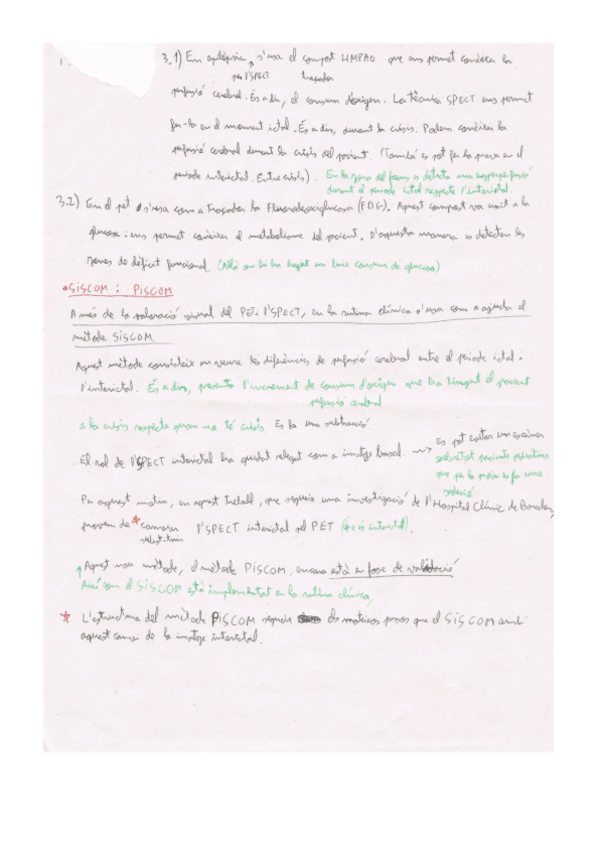 3.1) En epilèpsia, s'usa el compost HMPAO que ens permet conèixer la
per l'SPECT traçador
perfusió cerebral. És a dir, el consum d'oxigen. La tècnica SPECT ens permet
fer-la en el moment ictal. És a dir, durant la crisis. Podem conèixer la
perfusió cerebral durant la crisis del pacient. (També es pot fer la prova en el
període interictal. Entre crisis).
En la zona del focus es detecta una hiperperfusió
durant el període ictal respecte l'interictal
3.2) En el pet s'usa com a traçador la Fluorodesoxiglucosa (FDG). Aquest compost va unit a la
glucosa i ens permet conèixer el metabolisme del pacient. D'aquesta manera es detecten les
zones de dèficit funcional. (Allà on hi ha hagut un baix consum de glucosa)
•SISCOM : PISCOM
A més de la valoració visual del PET i l'SPECT, en la rutina clínica s'usa com a ajuda el
mètode SISCOM.
Aquest mètode consisteix en veure les diferències de perfusió cerebral entre el període ictal i
l'interictal. És a dir, presenta l'increment de consum d'oxigen que ha tingut el pacient
perfusió cerebral
a la crisis respecte quan no té crisis Es fa una subtracció.
El rol de l'SPECT interictal ha quedat relegat com a imatge basal.
Es pot evitar un examen
sobretot pacients pediàtrics
que per la prova es fa una
sedació
Per aquest motiu, en aquest treball, que segueix una investigació de l'Hospital Clínic de Barcelona,
provem de * canviar l'SPECT interictal pel PET (que és interictal).
substituir
Aquest nou mètode, el mètode PISCOM, encara està en fase de validació
Així com el SISCOM està implementat en la rutina clínica,
* L'estructura del mètode PISCOM segueix els mateixos passos que el SISCOM amb
aquest canvi de la imatge interictal.